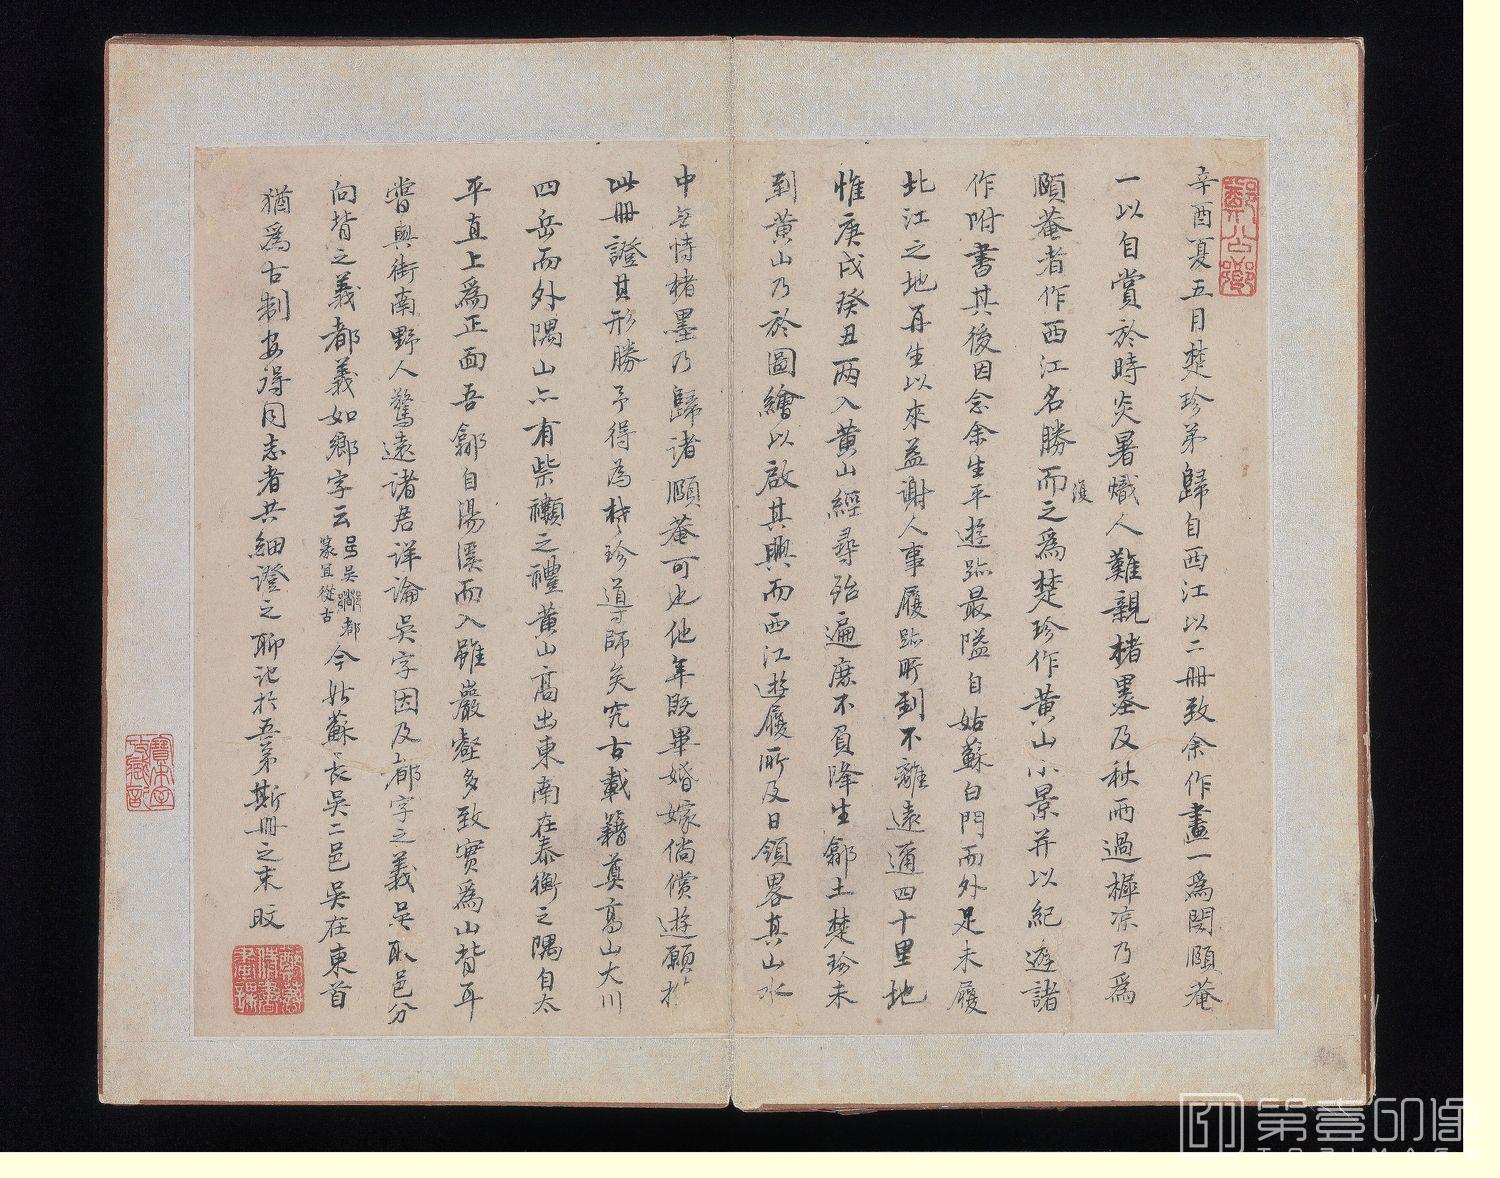 辛酉夏五月楚珍弟歸自西江以二冊致余作畫一爲閔頤菴
一以自賞於時炎暑熾人難親楮墨及秋雨過樨凉乃爲
頤菴者作西江名勝而復之爲楚珍作黄山小景并以紀遊諸
作附書其後因念余生平遊跡最隘自姑蘇白門而外足未履
北江之地再生以來益謝人事履跡所到不離遠邇四十里地
惟庚戌癸丑兩入黄山經尋殆遍庶不負降生鄣土楚珍未
到黄山乃於圖繪以啟其興而西江遊履所及日領畧其山水
中無恃楮墨乃歸諸頤菴可也他年既畢婚嫁倘償遊願於
此冊證其形勝予得為楚珍導師矣究古載籍奠高山大川
四岳而外隅山亦有柴之禮黄山高出東南在泰衡之隅自太
平直上爲正面吾鄣自湯溪而入雖巖壑多致實爲山背耳
嘗與街南野人驚遠諸君详論吴字因及鄣字之義吴取邑分
向背之義都義如鄉字云吴都篆宜從古今姑蘇長吴二邑吴在東首
猶爲古制安得同志者共細證之聊記於吾弟斯冊之末旼
鄭公鄉